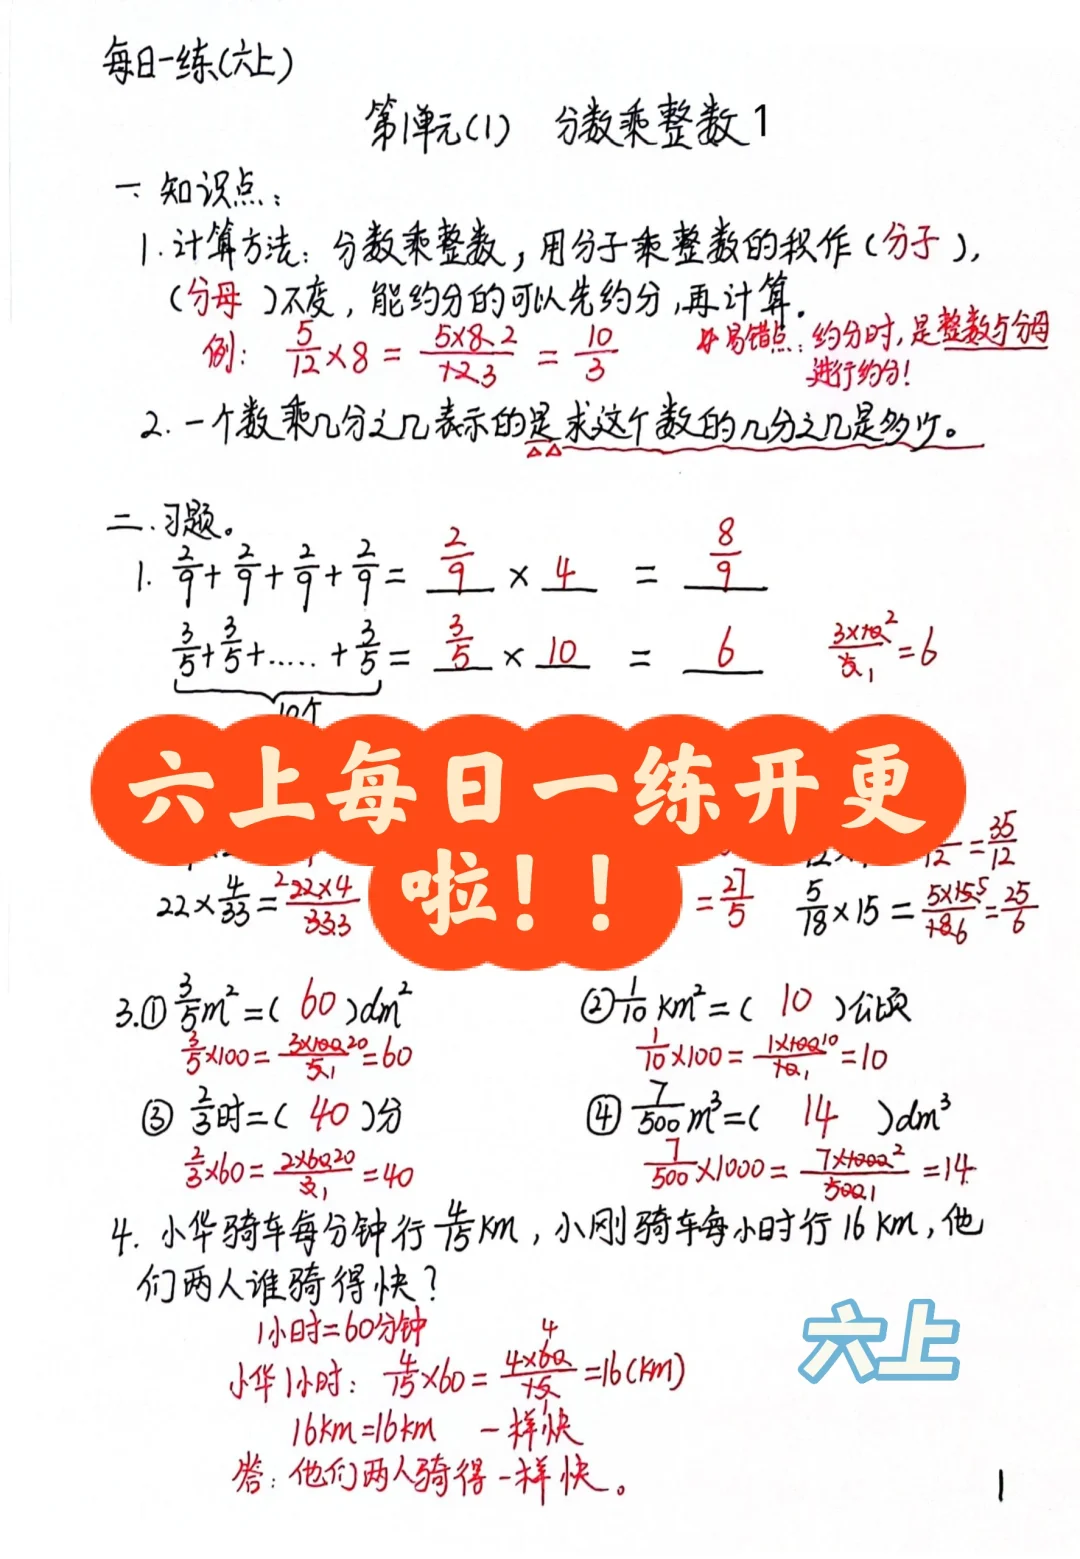 每日一练(六上)
第1单元(1) 分数乘整数1
一、知识点:
1.计算方法:分数乘整数,用分子乘整数的积作(分子),
(分母)不变,能约分的可以先约分,再计算。
例: 5/12×8=5×8 2/12 3=10/3
易错点:约分时,是整数与分母
进行约分!
2.一个数乘几分之几表示的是求这个数的几分之几是多少。
二.习题。
1. 2/9+2/9+2/9+2/9=2/9×4=8/9
3/5+3/5+.....+3/5=3/5×10=6 3×10 2/5 1=6
10个
六上每日一练开更
啦!!
=35/12
22×4/33=2 22×4/33 3 =27/5 5/18×15=5×15 5/18 6=25/6
3.①3/5m²=(60)dm² ②1/10km²=(10)公顷
3/5×100=3×100 20/5 1=60 1/10×100=1×100 10/10 1=10
③2/3时=(40)分 ④7/500m³=(14)dm³
2/3×60=2×60 20/3 1=40 7/500×1000=7×1000 2/500 1=14
4.小华骑车每分钟行4/15km,小刚骑车每小时行16km,他
们两人谁骑得快?
1小时=60分钟
小华1小时:4/15×60=4×60 4/15 1=16(km)
16km=16km 一样快
答:他们两人骑得一样快。
六上
1